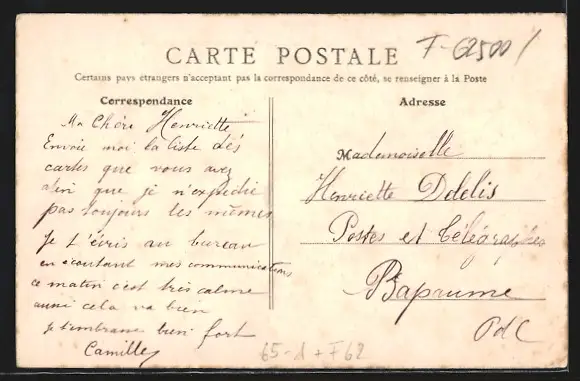 CARTE POSTALE
F-62500/
Certains pays étrangers n'acceptant pas la correspondance de ce côté, se renseigner à la Poste
Correspondance
Ma Chère Henriette
Envoie moi la liste dés
cartes que vous avez
afin que je n'expédie
pas toujours les mêmes
Je t'écris au bureau
en écoutant mes communications
ce matin c'est très calme
aussi cela va bien
je t'embrasse bien fort
Camille
Adresse
Mademoiselle
Henriette Ddelis
Postes et Télégraphes
Bapaume
PdC
65-d + F62